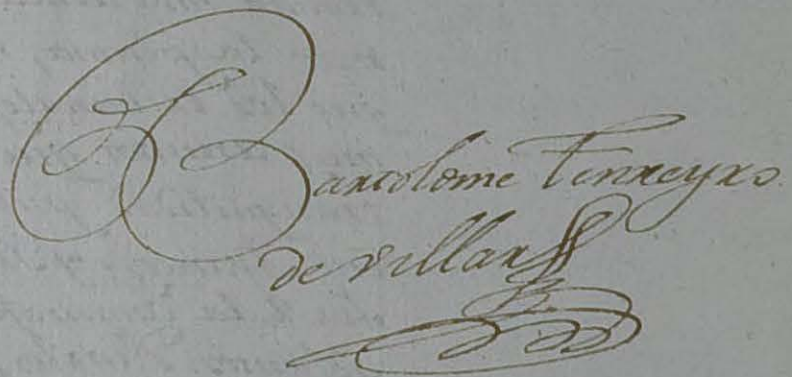 Bartolome Tenreyro
de Villar